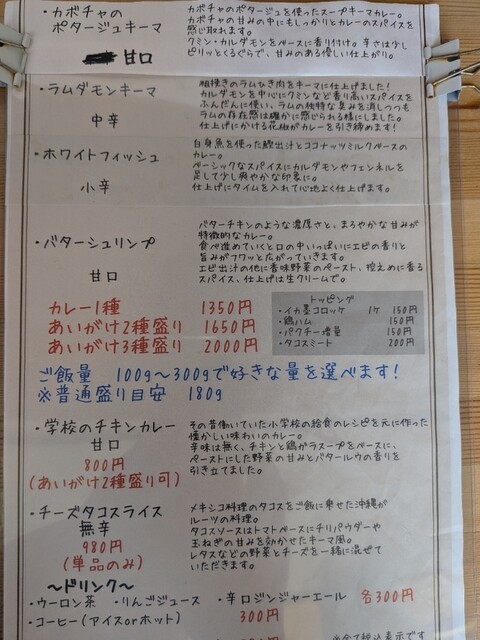 ・カボチャの
ポタージュキーマ
甘口
カボチャのポタージュを使ったスープキーマカレー。
カボチャの甘みの中にもしっかりとカレーのスパイスを
感じ取れます。
クミン・カルダモンをベースに香り付け。辛さは少し
ピリッとくるぐらいで、甘みのある優しい仕上がり。
・ラムダモンキーマ
中辛
粗挽きのラムひき肉をキーマに仕上げました!
カルダモンを中心にクミンなど香り高いスパイスを
ふんだんに使い、ラムの独特な臭みを消しつつも
ラムの存在感は確かに感じられる様にしました。
仕上げにかける花椒がカレーを引き締めます!
・ホワイトフィッシュ
小辛
白身魚を使った鰹出汁とココナッツミルクベースの
カレー。
ベーシックなスパイスにカルダモンやフェンネルを
足して少し爽やかな印象に。
仕上げにタイムを入れて心地よく仕上げます。
・バターシュリンプ
甘口
バターチキンのような濃厚さと、まろやかな甘みが
特徴的なカレー。
食べ進めていくと口の中いっぱいにエビの香りと
旨みがフワッと広がっていきます。
エビ出汁の他に香味野菜のペースト、控えめに香る
スパイス、仕上げは生クリームで。
カレー1種 1350円
あいがけ2種盛り 1650円
あいがけ3種盛り 2000円
トッピング
・イカ墨コロッケ 1ヶ 150円
・鶏ハム 150円
・パクチー増量 150円
・タコスミート 200円
ご飯量 100g〜300gで好きな量を選べます!
※普通盛り目安 180g
・学校のチキンカレー
甘口
800円
(あいがけ2種盛り可)
その昔働いていた小学校の給食のレシピを元に作った
懐かしい味わいのカレー。
辛味は無く、チキンと鶏がらスープをベースに、
ペーストにした野菜の甘みとバタールウの香りを
引き立てました。
・チーズタコスライス
無辛
980円
(単品のみ)
メキシコ料理のタコスをご飯に乗せた沖縄が
ルーツの料理。
タコスソースはトマトベースにチリパウダーや
玉ねぎの甘みを効かせたキーマ風。
レタスなどの野菜とチーズを一緒に混ぜて
いただきます。
〜ドリンク〜
・ウーロン茶 ・りんごジュース ・辛口ジンジャーエール 各300円
・コーヒー(アイスorホット) 300円